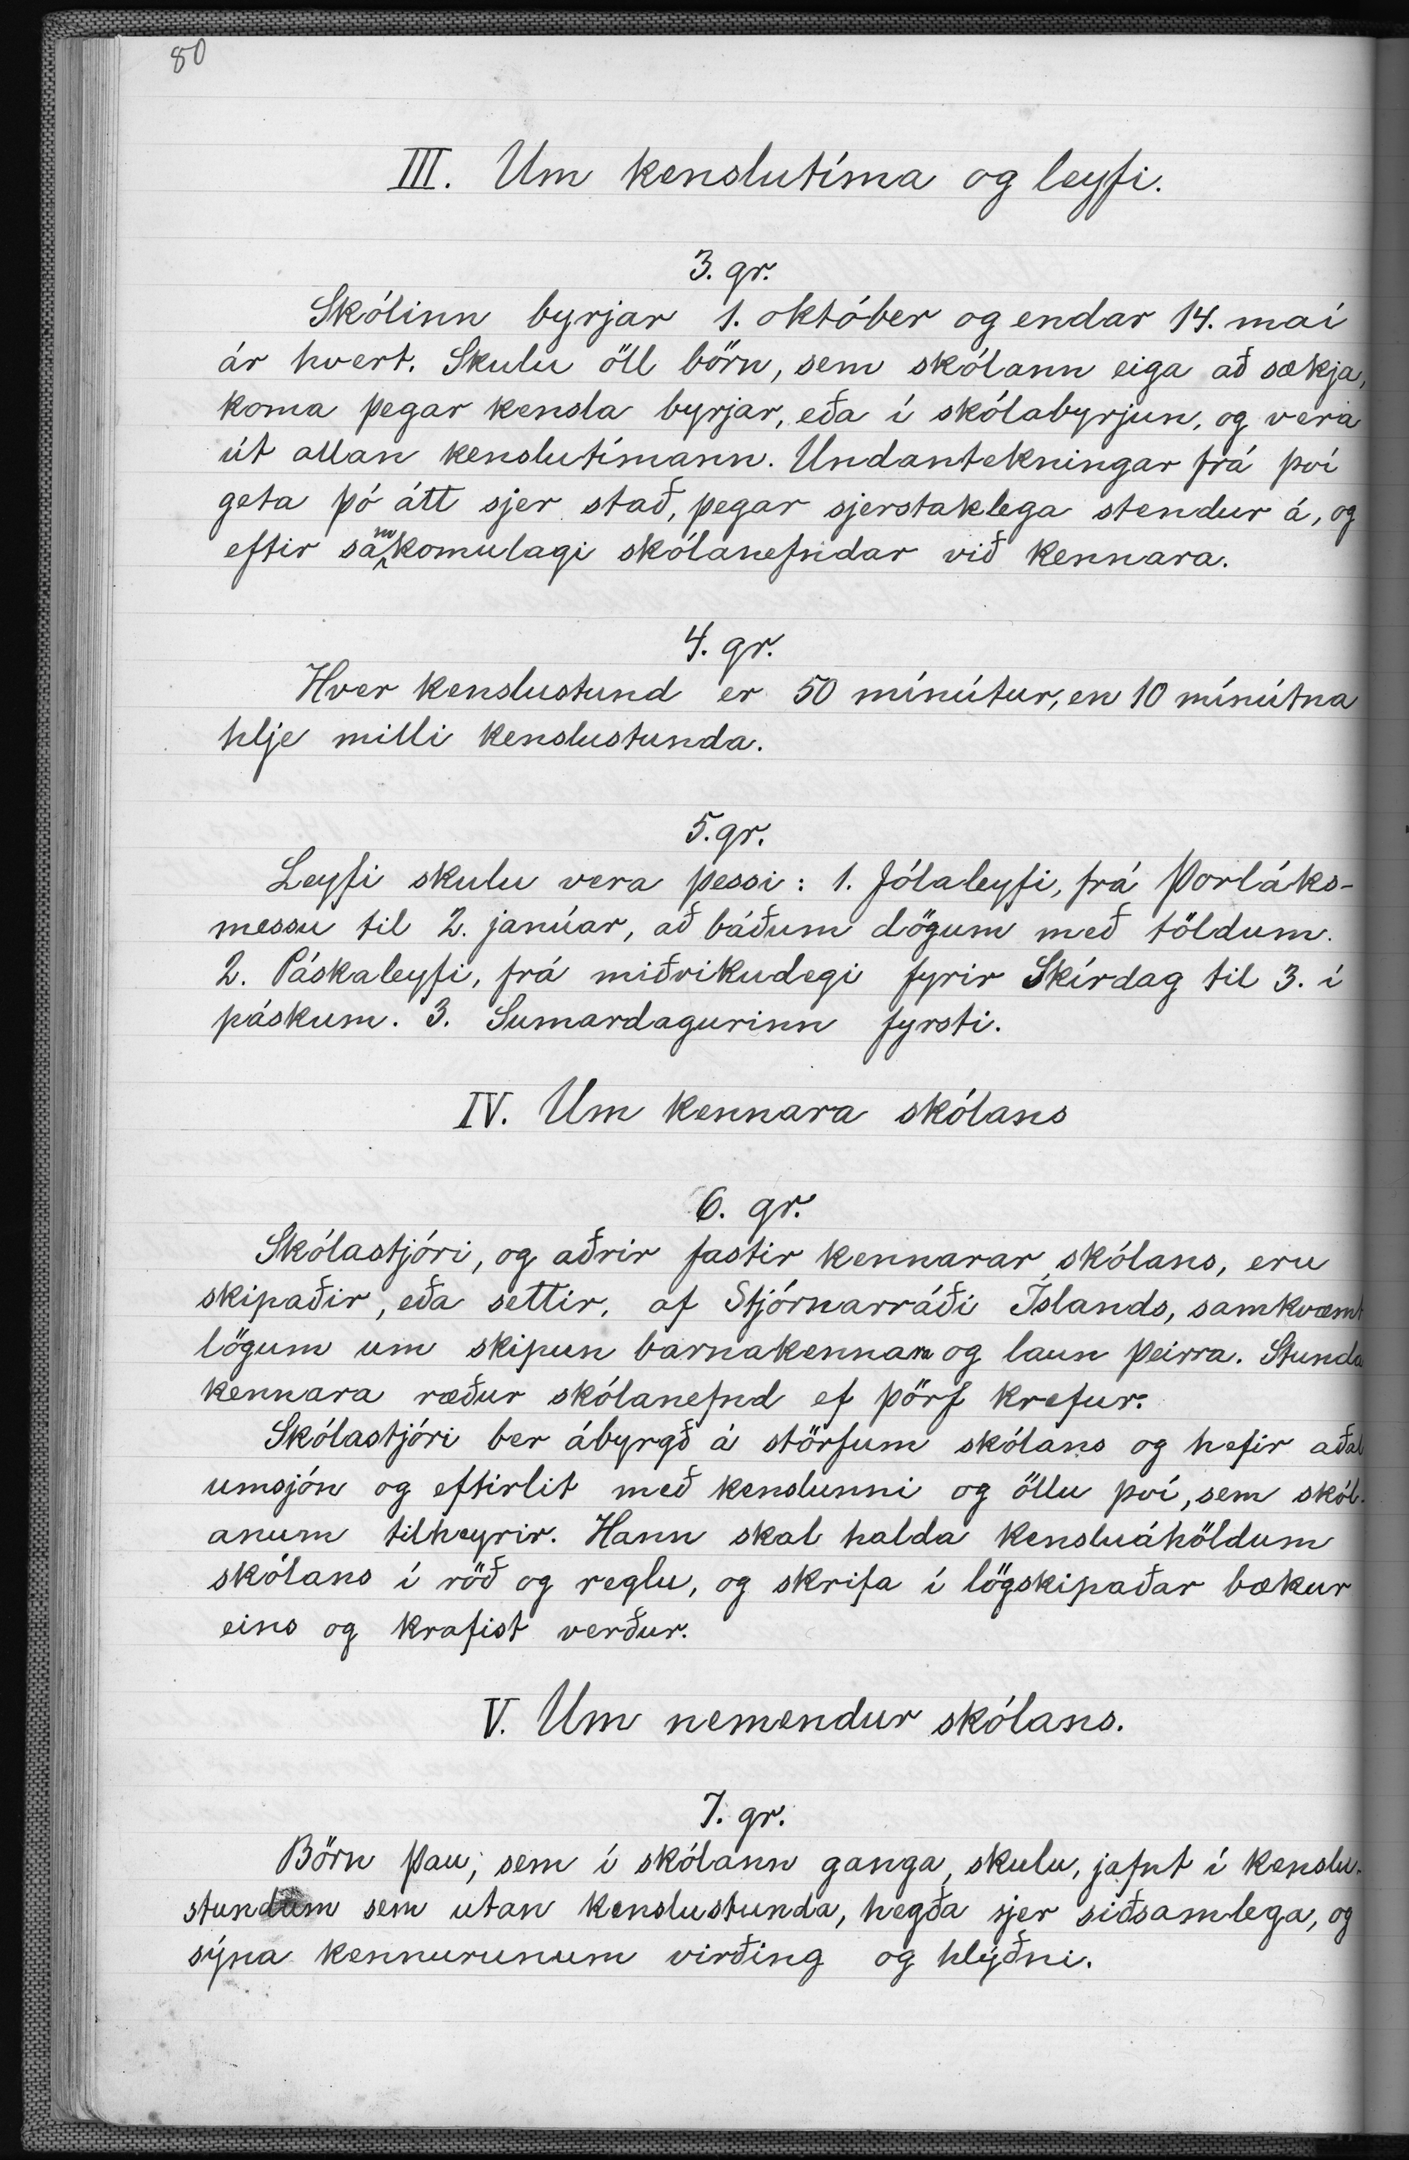 80
III. Um kenslutíma og leyfi.
3. gr.
Skólinn byrjar 1. október og endar 14. maí
ár hvert. Skulu öll börn, sem skólann eiga að sækja,
koma þegar kensla byrjar, eða í skólabyrjun, og vera
út allan kenslutímann. Undantekningar frá því
geta þó átt sjer stað, þegar sjerstaklega stendur á, og
eftir samkomulagi skólanefndar við kennara.
4. gr.
Hver kenslustund er 50 mínútur, en 10 mínútna
hlje milli kenslustunda.
5. gr.
Leyfi skulu vera þessi: 1. Jólaleyfi, frá Þorláks-
messu til 2. janúar, að báðum dögum með töldum.
2. Páskaleyfi, frá miðvikudegi fyrir Skírdag til 3. í
páskum. 3. Sumardagurinn fyrsti.
IV. Um kennara skólans
6. gr.
Skólastjóri, og aðrir fastir kennarar skólans, eru
skipaðir, eða settir, af Stjórnarráði Íslands, samkvæmt
lögum um skipun barnakennara og laun þeirra. Stunda
kennara ræður skólanefnd ef þörf krefur.
Skólastjóri ber ábyrgð á störfum skólans og hefir aðal
umsjón og eftirlit með kenslunni og öllu því, sem skól-
anum tilheyrir. Hann skal halda kensluáhöldum
skólans í röð og reglu, og skrifa í lögskipaðar bækur
eins og krafist verður.
V. Um nemendur skólans.
7. gr.
Börn þau, sem í skólann ganga, skulu, jafnt í kenslu-
stundum sem utan kenslustunda, hegða sjer siðsamlega, og
sýna kennurunum virðing og hlýðni.